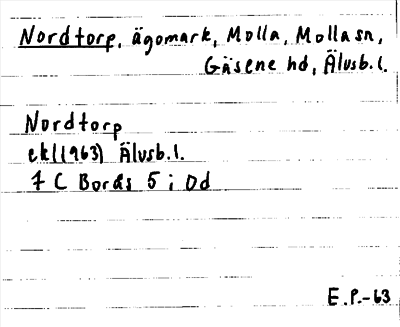 Nordtorp, ägomark, Molla, Molla sn,
Gäsene hd, Älvsb. l.
Nordtorp
ek (1963) Älvsb. l.
7 C Borås 5 i 0d
E.P.-63